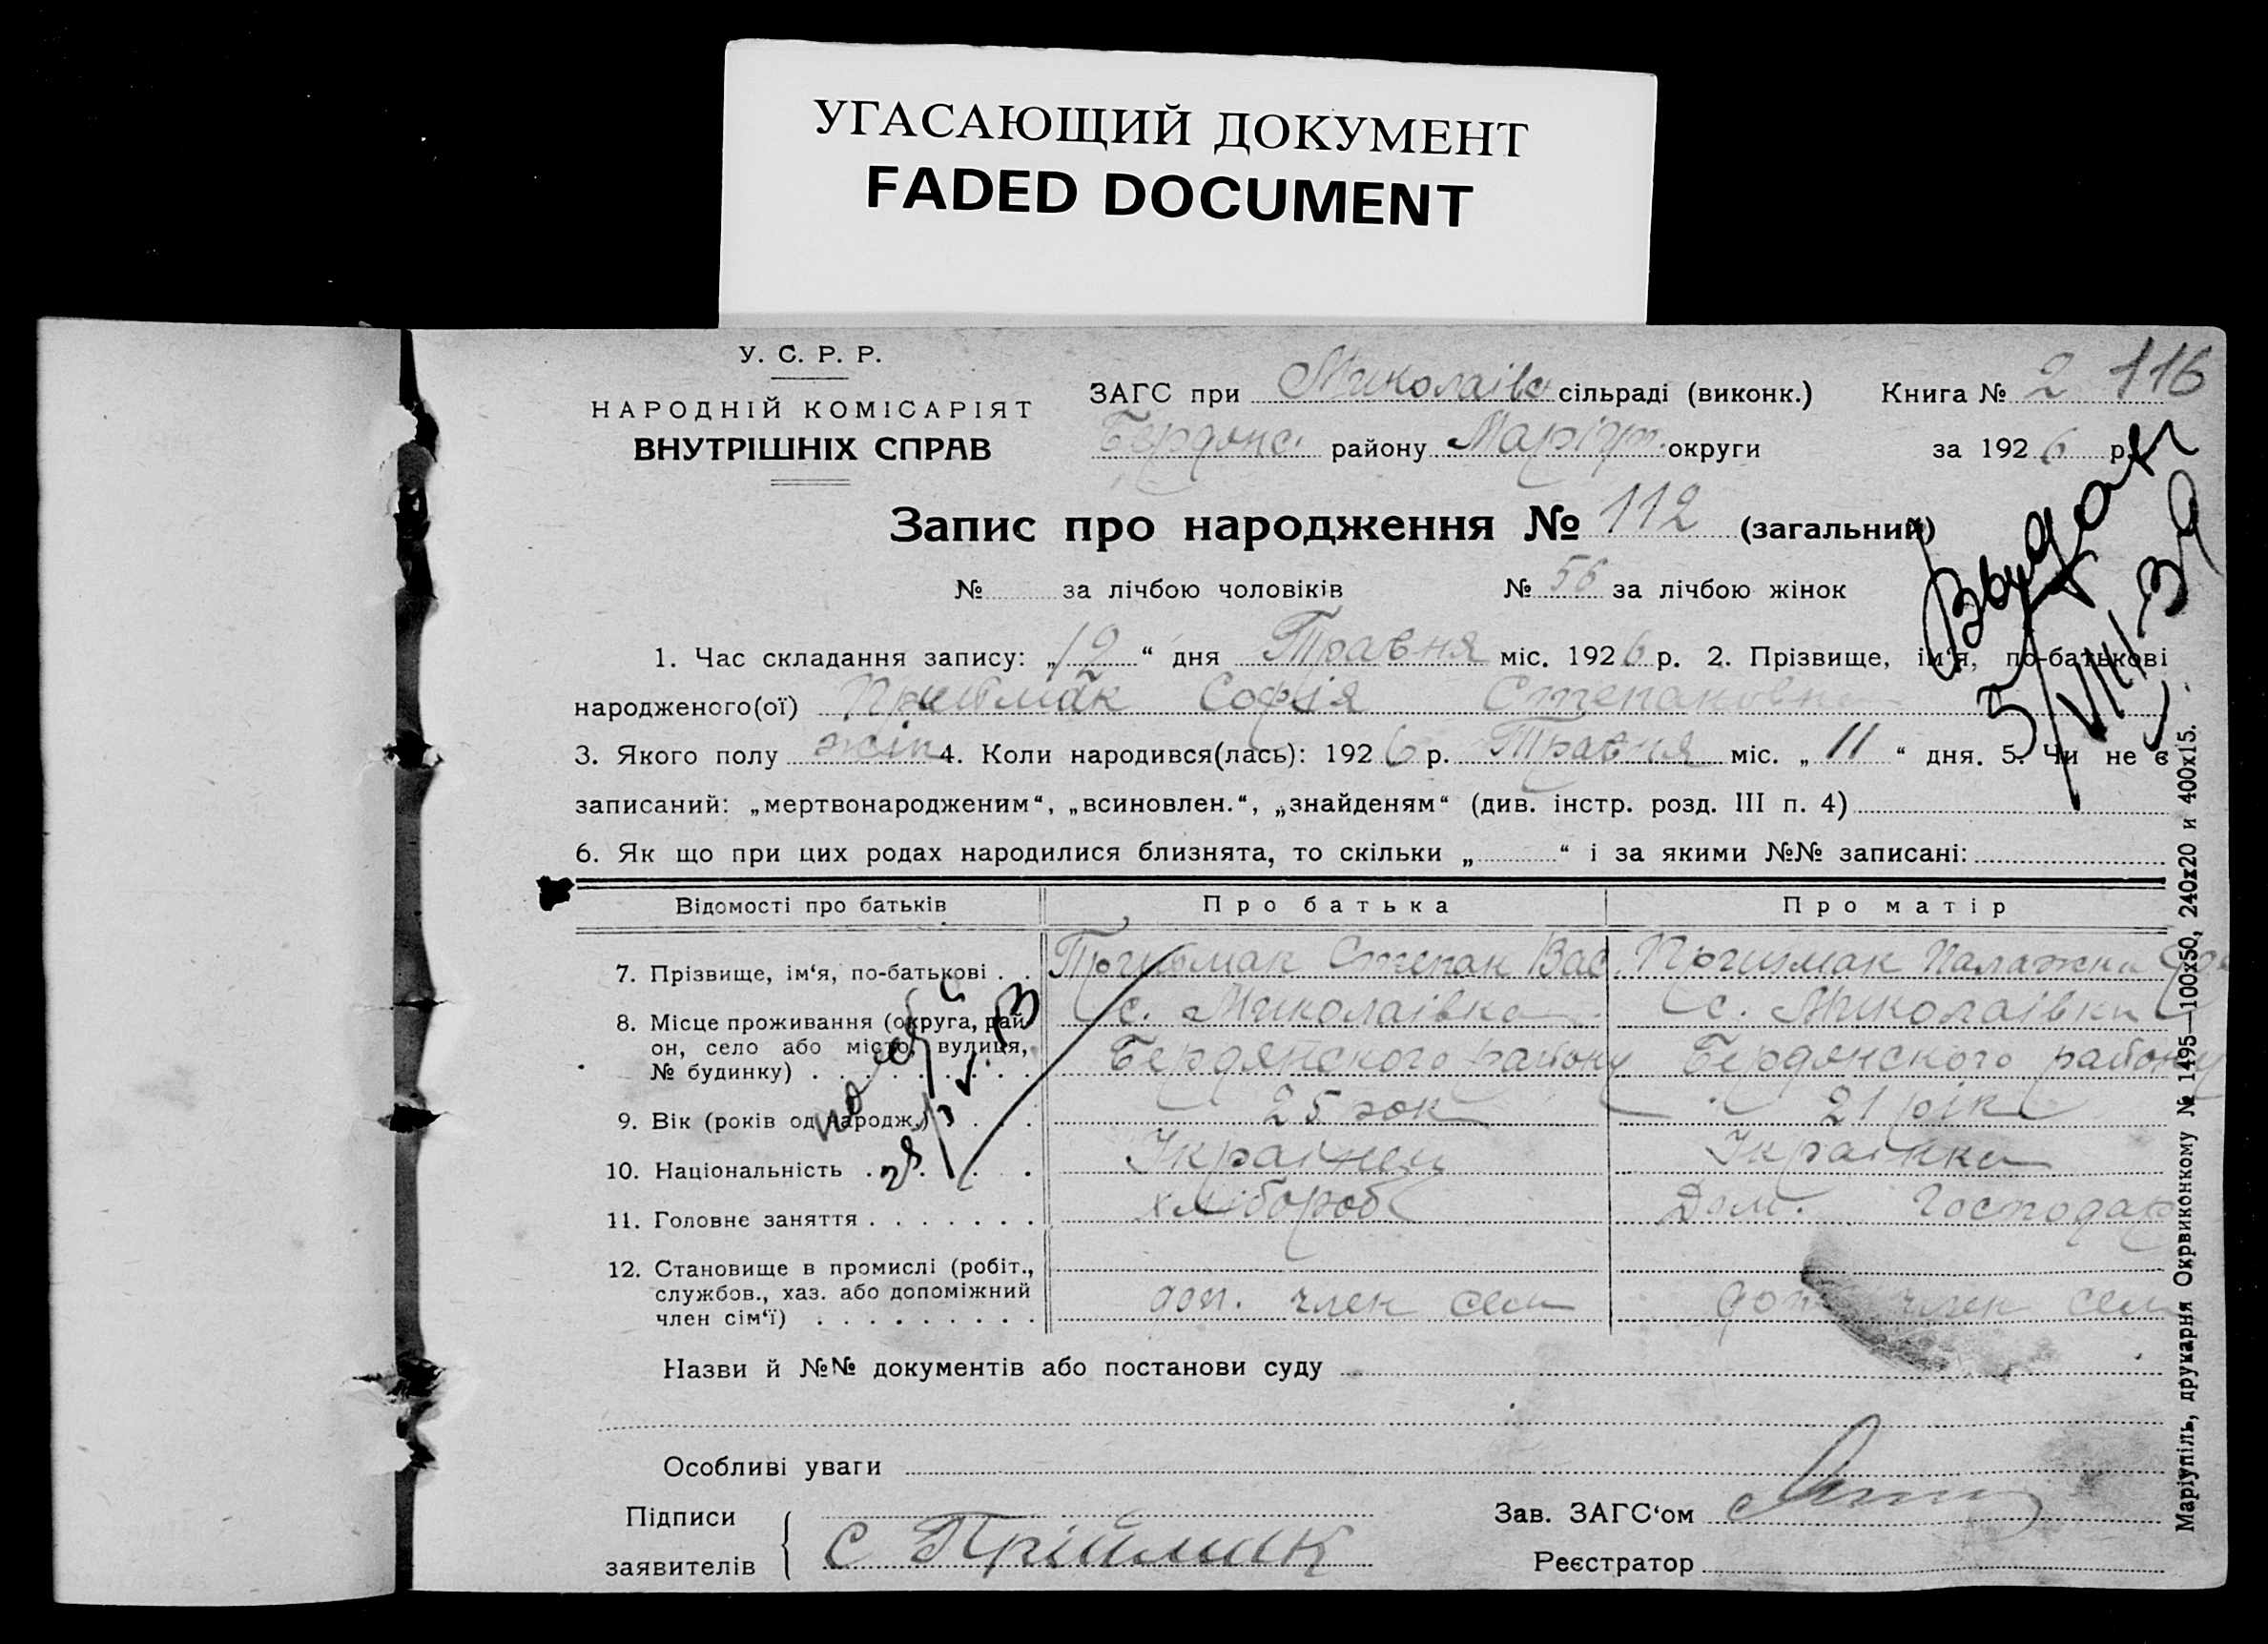 УГАСАЮЩИЙ ДОКУМЕНТ
FADED DOCUMENT
У. С. Р. Р.
НАРОДНІЙ КОМІСАРІЯТ
ВНУТРІШНІХ СПРАВ
ЗАГС при Миколаівс сільраді (виконк.) Книга № 2 116
Бердянс. району Маріуп. округи за 1926 р.
Запис про народження № 112 (загальний)
№ за лічбою чоловіків № 56 за лічбою жінок
Выдан
5/VIII-39
1. Час складання запису: „12“ дня Травня міс. 1926 р. 2. Прізвище, ім‘я, по-батькові
народженого(ої) Приймак Софія Степановна
3. Якого полу жін 4. Коли народився(лась): 1926 р. Травня міс. „11“ дня. 5. Чи не є
записаний: „мертвонародженим“, „всиновлен.“, „знайденям“ (див. інстр. розд. III п. 4)
6. Як що при цих родах народилися близнята, то скільки „ “ і за якими №№ записані:
Відомості про батьків Про батька Про матір
7. Прізвище, ім‘я, по-батькові Приймак Степан Вас. Приймак Палажка
8. Місце проживання (округа, рай- с. Миколаівка с. Миколаівки
он, село або місто, вулиця, Бердянского району Бердянского району
№ будинку)
9. Вік (років од народж.) 25 рок 21 рік
10. Національність Украінец Украінка
11. Головне заняття хлібороб Дом. Господар
12. Становище в промислі (робіт.,
службов., хаз. або допоміжний
член сім‘ї) доп. член сем доп член сем
Назви й №№ документів або постанови суду
Особливі уваги
Підписи
заявителів С Прііймак
Зав. ЗАГС‘ом
Реєстратор
Маріупіль, друкарня Окрвиконкому № 1495—100х50, 240х20 и 400х15.